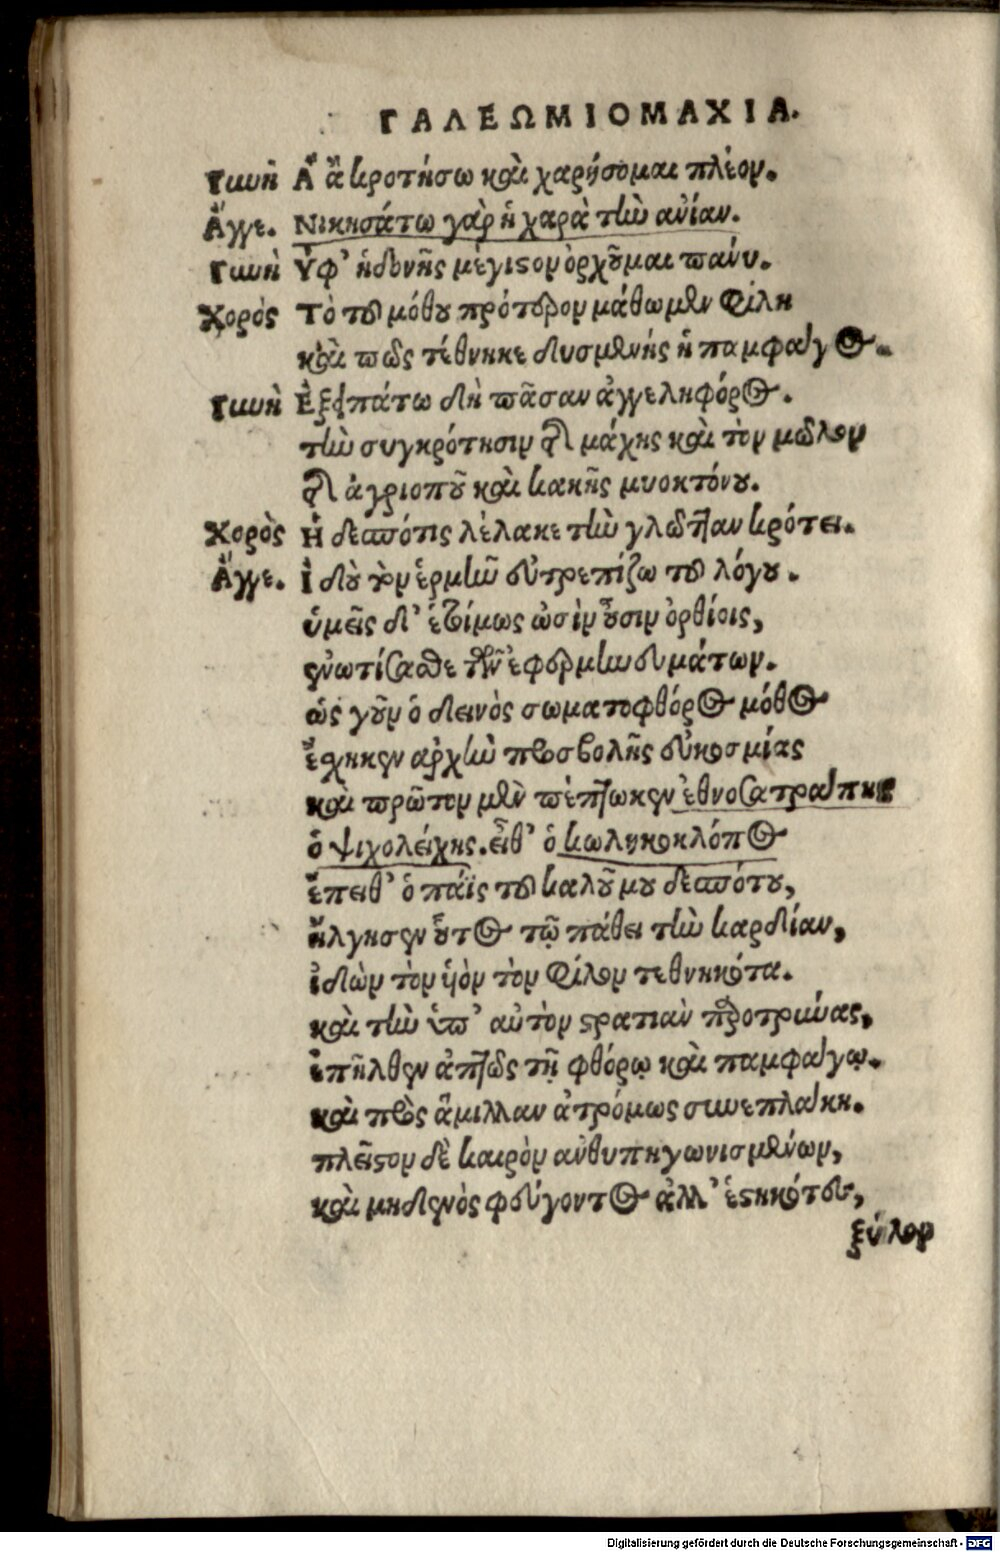 ΓΑΛΕΩΜΙΟΜΑΧΙΑ.
Γυνὴ Ἄ ἂ κροτήσω καὶ χαρήσομαι πλέον.
Ἄγγε. Νικησάτω γὰρ ἡ χαρὰ τὴν ἀνίαν.
Γυνὴ Ὑφ' ἡδονῆς μέγιστον ὀρχοῦμαι πάνυ.
Χορὸς Τὸ τοῦ μόθου πρότερον μάθωμεν φίλη
καὶ πῶς τέθνηκε δυσμενὴς ἡ παμφάγος.
Γυνὴ Ἐξειπάτω δὴ πᾶσαν ἀγγεληφόρος.
τὴν συγκρότησιν τῆς μάχης καὶ τὸν μῶλον
τῆς ἀγριοποῦ καὶ κακῆς μυοκτόνου.
Χορὸς Ἡ δεσπότις λέλακε τὴν γλῶτταν κρότει.
Ἄγγε. Ἰδοὺ τὸν εἱρμὸν εὐτρεπίζω τοῦ λόγου.
ὑμεῖς δ' ἑτοίμως ὠσὶν οὖσιν ὀρθίοις,
ἐνωτίσασθε τῶν ἐφερμηνευμάτων.
ὡς γοῦν ὁ δεινὸς σωματοφθόρος μόθος
ἔσχηκεν ἀρχὴν προσβολῆς εὐκοσμίας
καὶ πρῶτον μὲν πέπτωκεν ἐθνοσατράπης
ὁ ψιχολείχης. εἶθ' ὁ κωληκοκλόπος
ἔπειθ' ὁ παῖς τοῦ καλοῦ μου δεσπότου,
ἤλγησεν οὗτος τῷ πάθει τὴν καρδίαν,
ἰδὼν τὸν υἱὸν τὸν φίλον τεθνηκότα.
καὶ τὴν ὑπ' αὐτὸν στρατιὰν παροτρύνας,
ἐπῆλθεν ἀπτῶς τῇ φθόρῳ καὶ παμφάγῳ.
καὶ πρὸς ἅμιλλαν ἀτρόμως συνεπλάκη.
πλεῖστον δὲ καιρὸν ἀνθυπηγωνισμένων,
καὶ μηδενὸς φεύγοντος ἀλλ' ἑστηκότες,
ξύλον
Digitalisierung gefördert durch die Deutsche Forschungsgemeinschaft - DFG